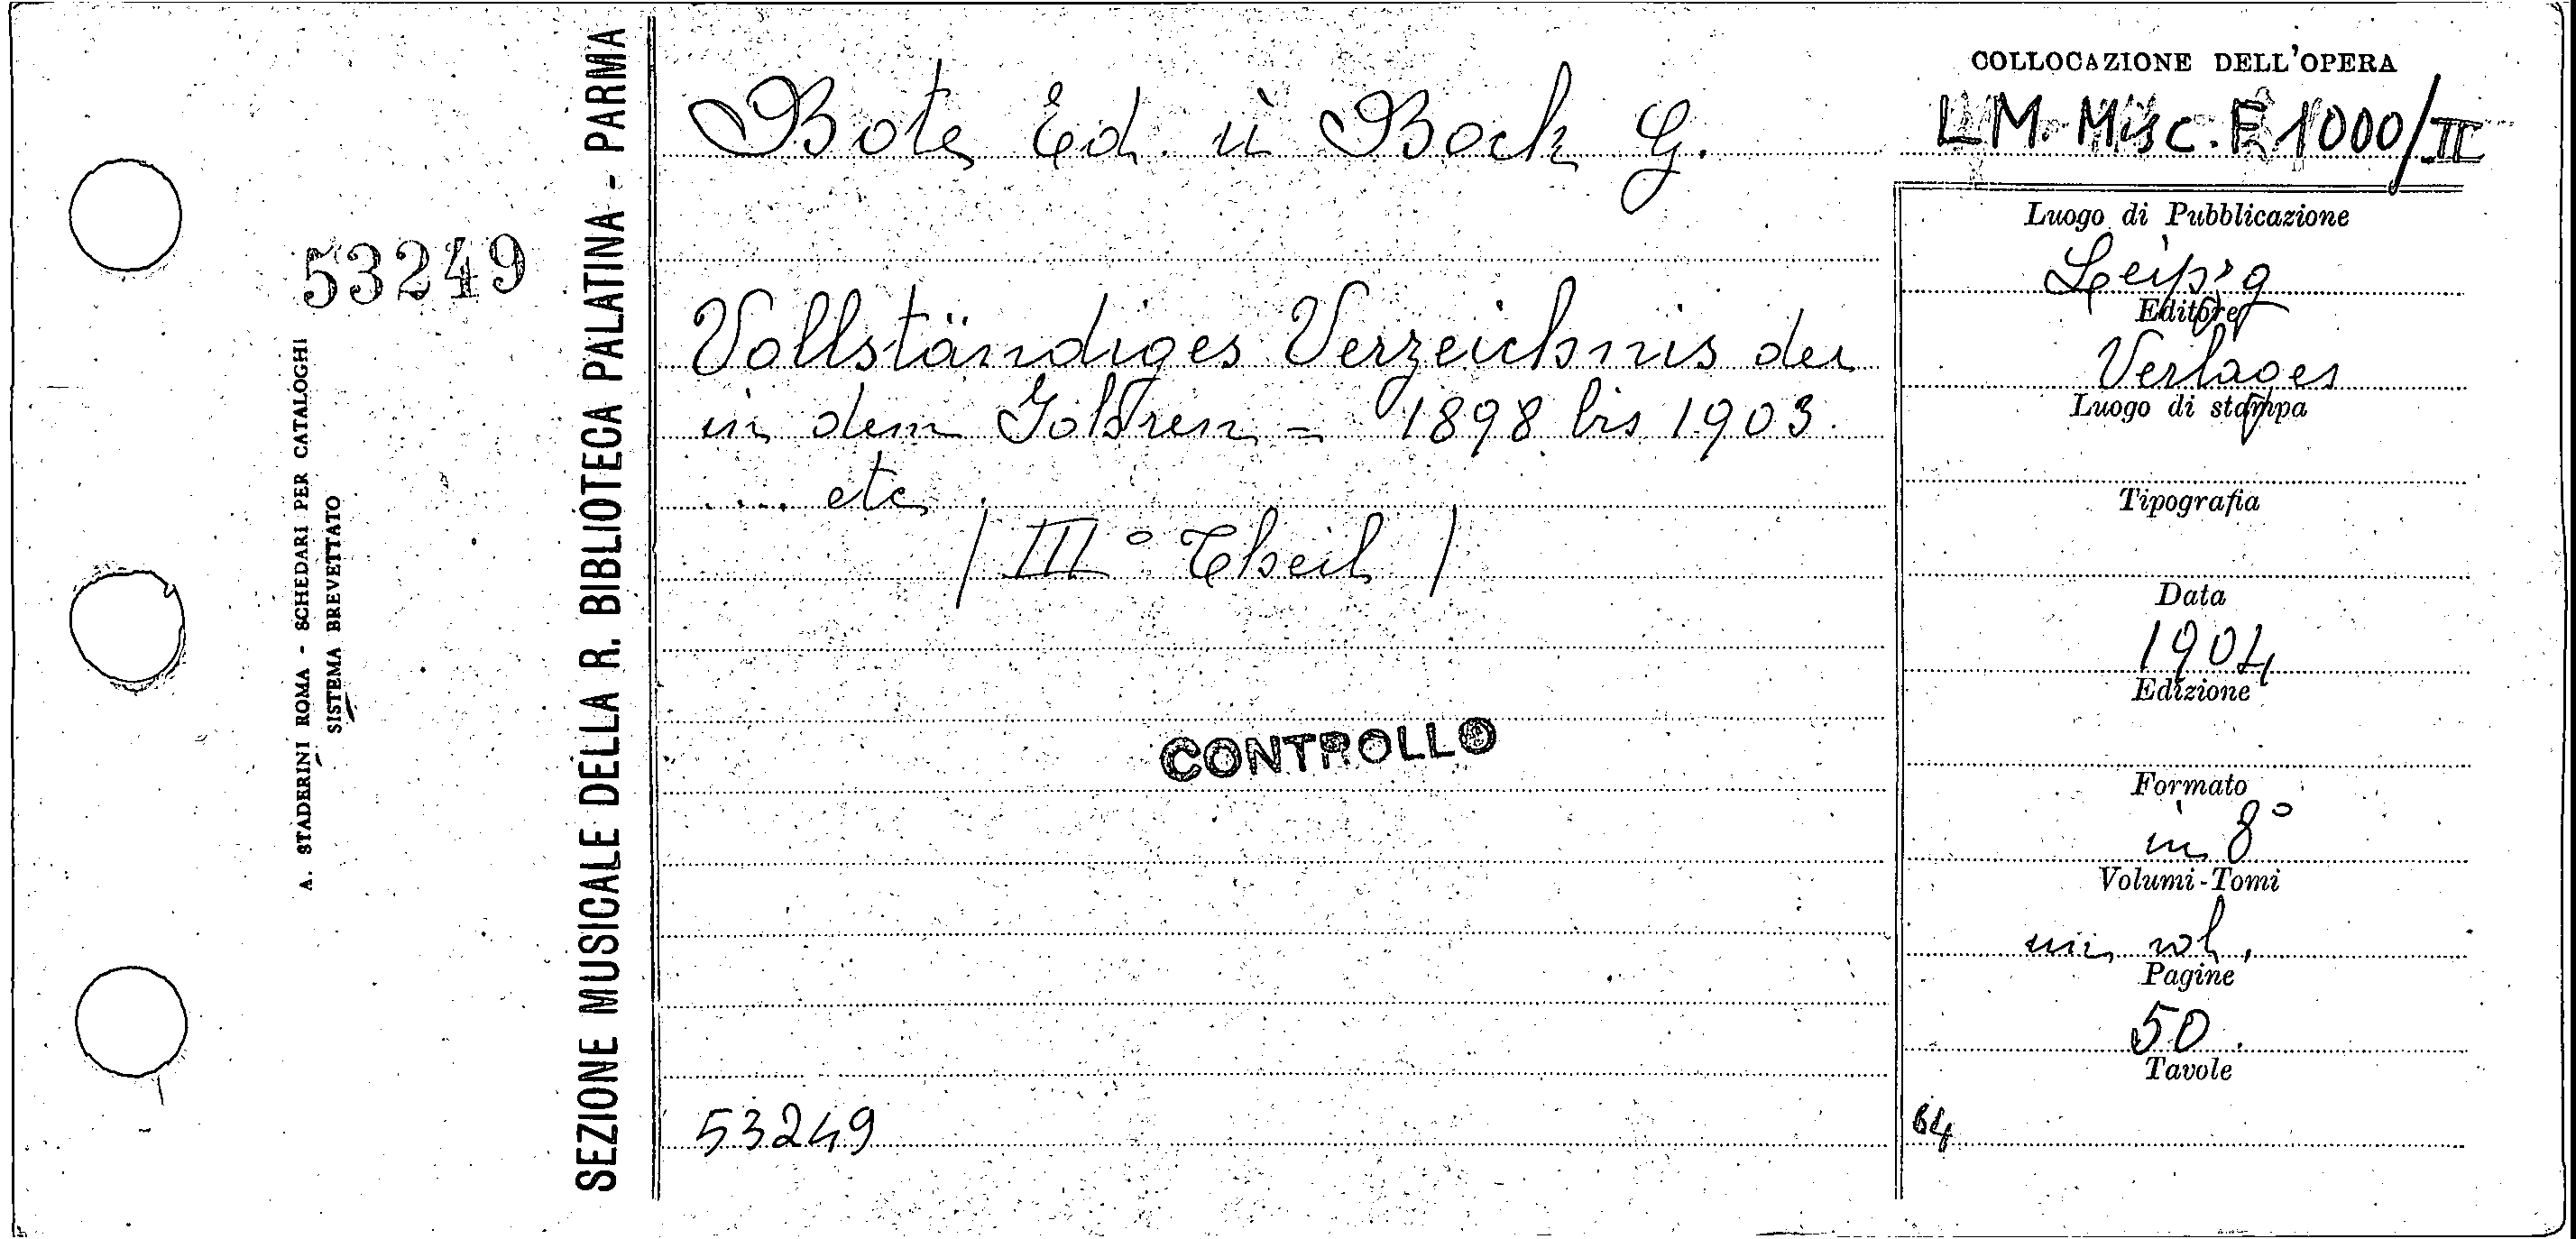 COLLOCAZIONE DELL'OPERA
LM. Misc. E 1000/II
Bote Ed. ù Bock G.
Vollständiges Verzeichnis der
in dem 1898 bis 1903.
.... etc.
/ III° Theil /
CONTROLLO
53249
Luogo di Pubblicazione
Leipzig
Editore
Verlages
Luogo di stampa
Tipografia
Data
1904
Edizione
Formato
in 8°
Volumi-Tomi
vol.
Pagine
50.
Tavole
64
53249
A. STADERINI ROMA - SCHEDARI PER CATALOGHI
SISTEMA BREVETTATO
SEZIONE MUSICALE DELLA R. BIBLIOTECA PALATINA - PARMA